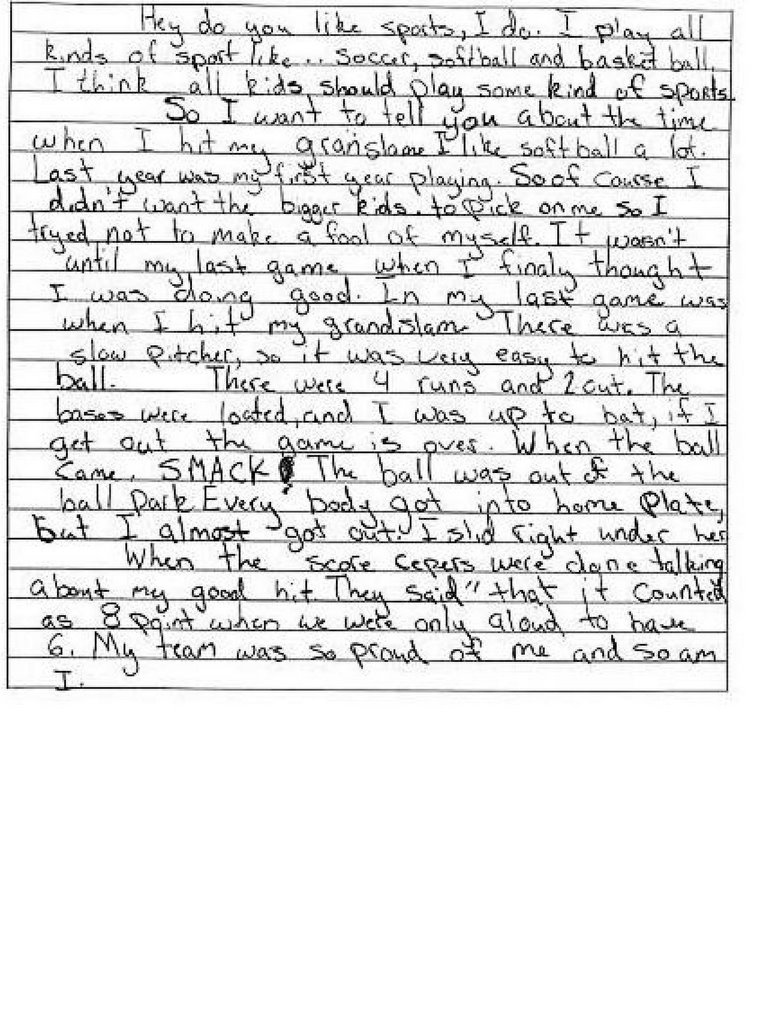 Hey do you like sports, I do. I play all
kinds of sport like... soccer, softball and basket ball.
I think all kids should play some kind of sports.
So I want to tell you about the time
when I hit my granslame I like softball a lot.
Last year was my first year playing. So of course I
didn't want the bigger kids. to pick on me so I
tryed not to make a fool of myself. It wasn't
until my last game when I finaly thought
I was doing good. In my last game was
when I hit my grandslam There was a
slow pitcher, so it was very easy to hit the
ball. There were 4 runs and 2 out. The
bases were loated, and I was up to bat, if I
get out the game is over. When the ball
came, SMACK! The ball was out of the
ball park Every body got into home plate,
but I almost got out. I slid right under her
When the score cepers were done talking
about my good hit. They said " that it counted
as 8 point when we were only aloud to have
6. My team was so proud of me and so am
I.